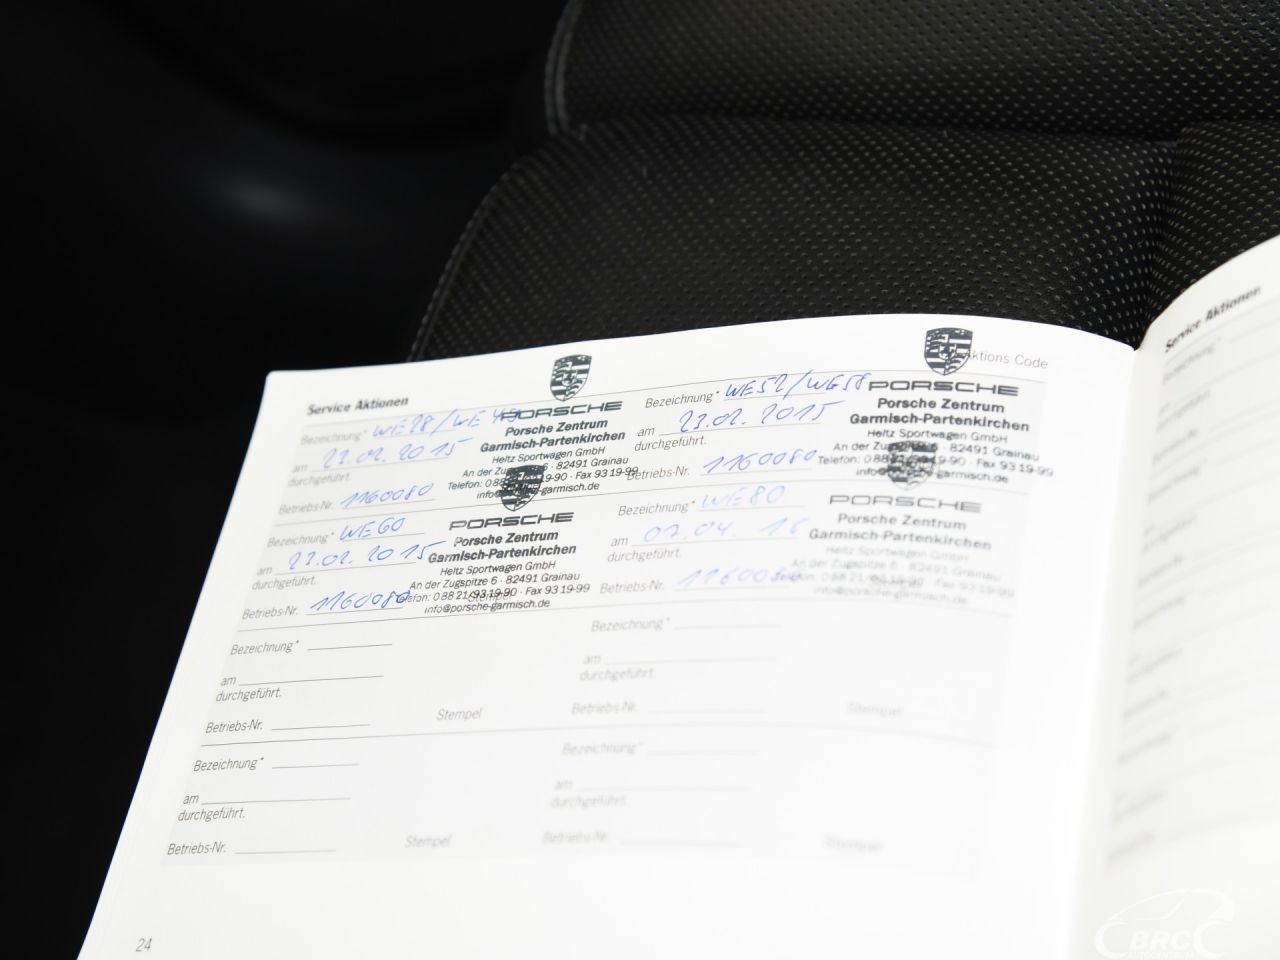 Service Aktionen
* Aktions Code
Bezeichnung* WE28/WE49
am 23.02.2015
durchgeführt.
Betriebs-Nr. 1160080
PORSCHE
Porsche Zentrum
Garmisch-Partenkirchen
Heitz Sportwagen GmbH
An der Zugspitze 6 · 82491 Grainau
Telefon: 0 88 21/93 19-90 · Fax 93 19-99
info@porsche-garmisch.de
Bezeichnung* WE52/WE58
am 23.02.2015
durchgeführt.
Betriebs-Nr. 1160080
PORSCHE
Porsche Zentrum
Garmisch-Partenkirchen
Heitz Sportwagen GmbH
An der Zugspitze 6 · 82491 Grainau
Telefon: 0 88 21/93 19-90 · Fax 93 19-99
info@porsche-garmisch.de
Bezeichnung* WE60
am 23.02.2015
durchgeführt.
Betriebs-Nr. 1160080
PORSCHE
Porsche Zentrum
Garmisch-Partenkirchen
Heitz Sportwagen GmbH
An der Zugspitze 6 · 82491 Grainau
Telefon: 0 88 21/93 19-90 · Fax 93 19-99
Stempel
info@porsche-garmisch.de
Bezeichnung* WE80
am 07.04.16
durchgeführt.
Betriebs-Nr. 1160080
PORSCHE
Porsche Zentrum
Garmisch-Partenkirchen
Heitz Sportwagen GmbH
An der Zugspitze 6 · 82491 Grainau
Telefon: 0 88 21/93 19-90 · Fax 93 19-99
info@porsche-garmisch.de
Bezeichnung*
am
durchgeführt.
Betriebs-Nr. Stempel
Bezeichnung*
am
durchgeführt.
Betriebs-Nr. Stempel
Bezeichnung*
am
durchgeführt.
Betriebs-Nr. Stempel
Bezeichnung*
am
durchgeführt.
Betriebs-Nr. Stempel
24
Service Aktionen
BRC
AUTOCENTRUM